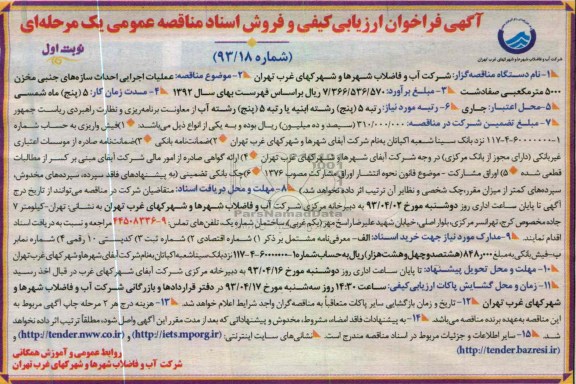 آگهی فراخوان ارزیابی کیفی و فروش اسناد مناقصه عمومی یک مرحله‌ای
(شماره ۹۳/۱۸)
نوبت اول
شرکت آب و فاضلاب شهرها و شهرکهای غرب تهران
۱- نام دستگاه مناقصه‌گزار: شرکت آب و فاضلاب شهرها و شهرکهای غرب تهران ۲- موضوع مناقصه: عملیات اجرایی احداث سازه‌های جنبی مخزن
۵۰۰۰ مترمکعبی صفادشت ۳- مبلغ برآورد: ۷/۳۶۶/۵۳۶/۵۷۰ ریال براساس فهرست بهای سال ۱۳۹۲ ۴- مدت زمان کار: ۵ (پنج) ماه شمسی
۵- محل اعتبار: جاری ۶- رتبه مورد نیاز: رتبه ۵ (پنج) رشته ابنیه یا رتبه ۵ (پنج) رشته آب از معاونت برنامه‌ریزی و نظارت راهبردی ریاست جمهور
۷- مبلغ تضمین شرکت در مناقصه: ۳۱۰/۰۰۰/۰۰۰ (سیصد و ده میلیون) ریال بوده و به یکی از انواع ذیل می‌باشد: ۱) فیش واریزی به حساب شماره
۱۱۷-۴-۶۰۰۰۰۰۰-۱ نزد بانک سینا شعبه اکباتان به‌نام شرکت آبفای شهرها و شهرکهای غرب تهران ۲) ضمانت‌نامه بانکی ۳) ضمانت‌نامه صادره از موسسات اعتباری
غیربانکی (دارای مجوز از بانک مرکزی) در وجه شرکت آبفای شهرها و شهرکهای غرب تهران ۴) ارائه گواهی صادره از امور مالی شرکت آبفای مبنی بر کسر از مطالبات
قطعی شده ۵) اوراق مشارکت - موضوع قانون نحوه انتشار اوراق مشارکت مصوب ۱۳۷۶ ۶) چک بانکی تضمینی (به پیشنهادهای فاقد سپرده، سپرده‌های مخدوش،
سپرده‌های کمتر از میزان مقرر، چک شخصی و نظایر آن ترتیب اثر داده نخواهد شد) ۸- مهلت و محل دریافت اسناد: متقاضیان شرکت در مناقصه می‌توانند از تاریخ درج
آگهی تا پایان ساعت اداری روز دوشنبه مورخ ۹۳/۰۴/۰۲ به دبیرخانه مرکزی شرکت آب و فاضلاب شهرها و شهرکهای غرب تهران به نشانی تهران-کیلومتر ۷
جاده مخصوص کرج، تهرانسر مرکزی، بلوار اصلی، خیابان شهید علیرضا راسخ مهر (یکم غربی)، ساختمان شماره یک، تلفن‌های تماس: ۹-۴۴۵۰۸۳۳۶ مراجعه و نسبت به دریافت اسناد
اقدام نمایند. ۹- مدارک مورد نیاز جهت خرید اسناد: الف - معرفی‌نامه مشتمل بر ذکر ۱) شماره اقتصادی ۲) شماره ثبت ۳) کدپستی ۱۰ رقمی ۴) شماره نمابر
ب- فیش بانکی به مبلغ ۸۴۸/۰۰۰ (هشتصد و چهل و هشت هزار) ریال به حساب شماره ۱-۶۰۰۰۰۰۰-۴-۱۱۷ نزد بانک سینا شعبه اکباتان به‌نام شرکت آبفای شهرها و شهرکهای غرب تهران
۱۰- مهلت و محل تحویل پیشنهادات: تا پایان ساعت اداری روز دوشنبه مورخ ۹۳/۰۴/۱۶ به دبیرخانه مرکزی شرکت آبفای شهرها و شهرکهای غرب تهران در قبال اخذ رسید
۱۱- زمان و محل گشایش پاکات ارزیابی کیفی: ساعت ۱۴:۳۰ روز سه‌شنبه مورخ ۹۳/۰۴/۱۷ در دفتر قراردادها و بازرگانی شرکت آب و فاضلاب شهرها و
شهرکهای غرب تهران ۱۲- تاریخ و زمان بازگشایی سایر پاکات متعاقباً به مناقصه‌گران واجد شرایط اعلام خواهد شد. ۱۳- هزینه درج هر ۲ مرحله چاپ آگهی مربوط به
این مناقصه به‌عهده برنده مناقصه می‌باشد. ۱۴- به پیشنهادات فاقد امضاء، مشروط، مخدوش و پیشنهاداتی که بعد از مدت مقرر این آگهی واصل شود، مطلقاً ترتیب اثر داده نخواهد
شد. ۱۵- سایر اطلاعات و جزئیات مربوط در اسناد مناقصه مندرج است. نشانی‌های سایت اینترنتی: (http://iets.mporg.ir) و (http://tender.nww.co.ir) و
(http://tender.bazresi.ir)
روابط عمومی و آموزش همگانی
شرکت آب و فاضلاب شهرها و شهرکهای غرب تهران
ParsNamadData